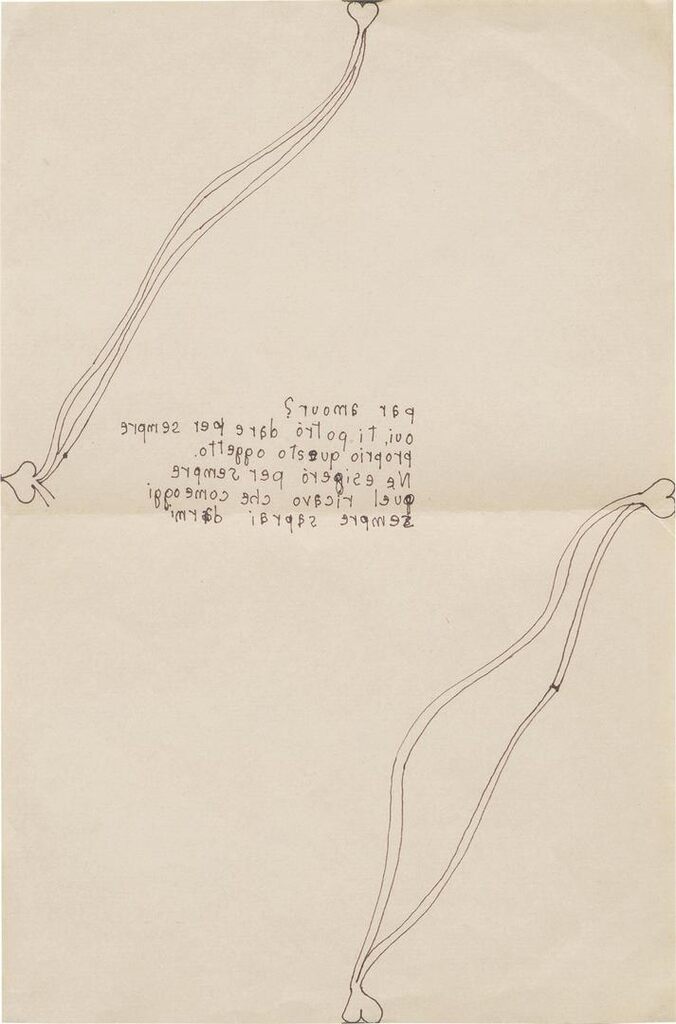 par amour?
oui, ti potrò dare per sempre
proprio questo oggetto.
Ne esigerò per sempre
quel ricavo che come oggi
sempre saprai darmi